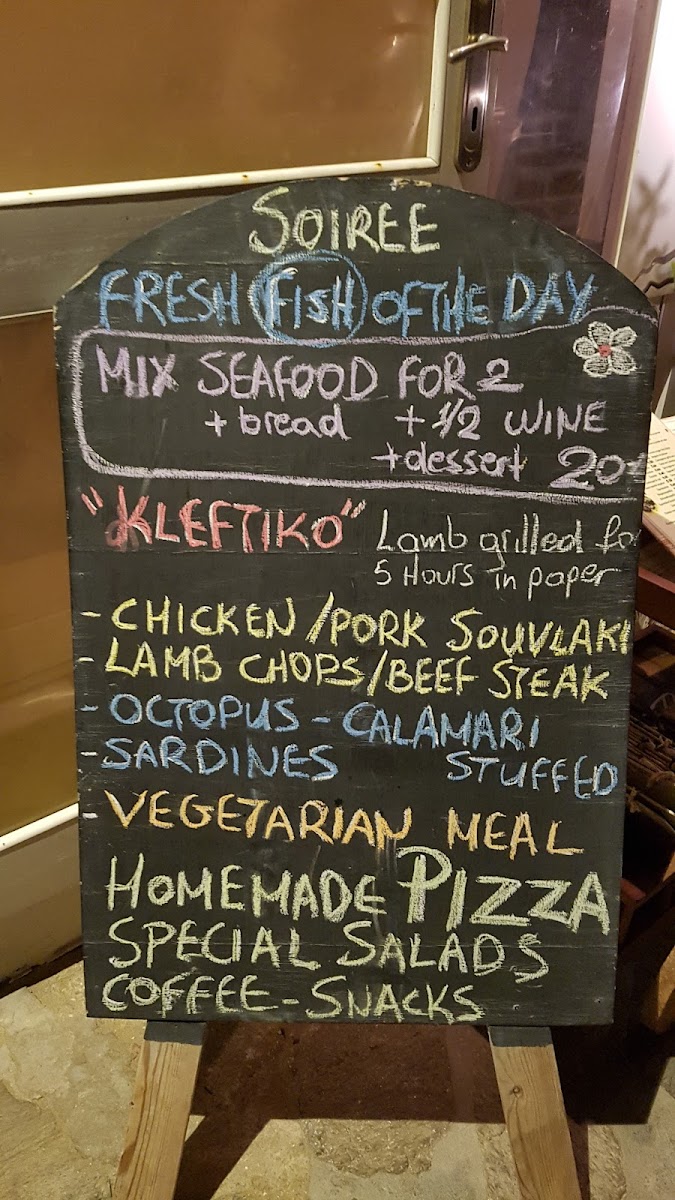 SOIREE
FRESH FISH OF THE DAY
MIX SEAFOOD FOR 2
+ bread + 1/2 WINE
+ dessert 20
"KLEFTIKO" Lamb grilled fo
5 Hours in paper
- CHICKEN/PORK SOUVLAKI
- LAMB CHOPS/BEEF STEAK
- OCTOPUS - CALAMARI
- SARDINES STUFFED
- VEGETARIAN MEAL
HOMEMADE PIZZA
SPECIAL SALADS
COFFEE - SNACKS